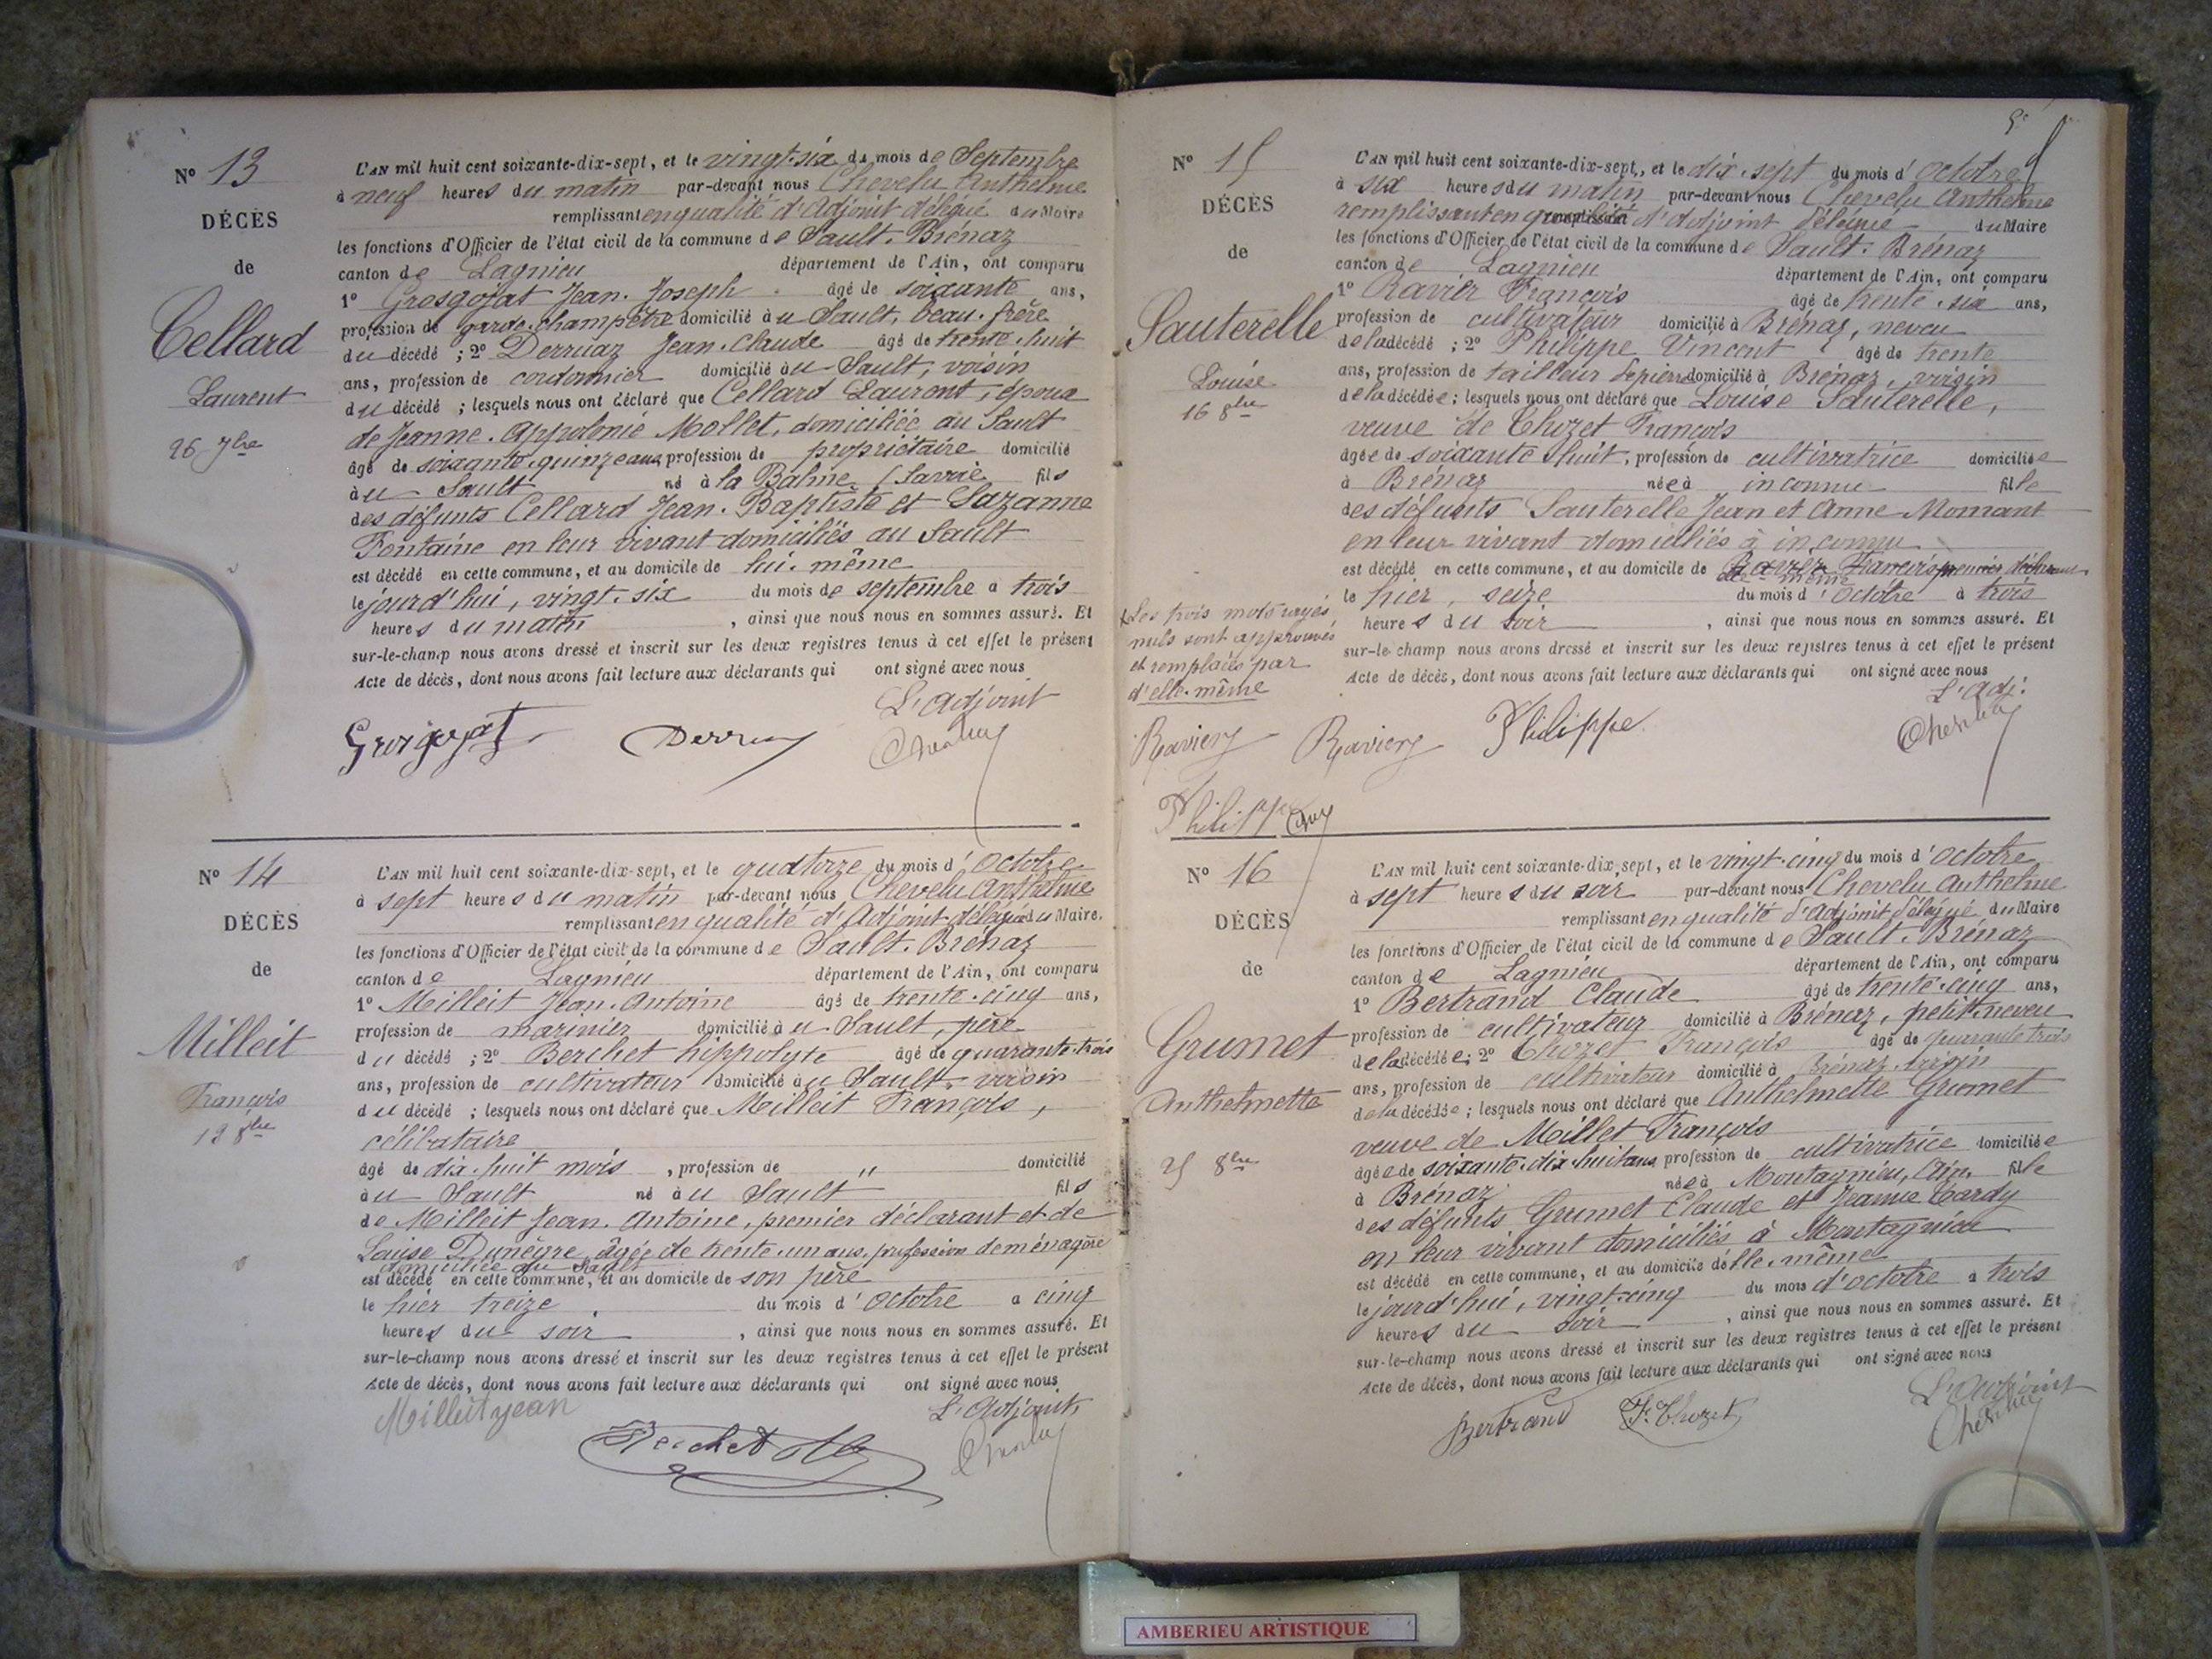 N° 13
DÉCÈS
de
Cellard
Laurent
26 7bre
L'AN mil huit cent soixante-dix-sept, et le vingt-six du mois de Septembre
à neuf heures du matin par-devant nous Chevelu Anthelme
remplissant en qualité d'Adjoint délégué du Maire
les fonctions d'Officier de l'état civil de la commune de Sault-Brénaz
canton de Lagnieu département de l'Ain, ont comparu
1° Grosgojat Jean-Joseph âgé de soixante ans,
profession de garde-champêtre domicilié au Sault, beau-frère
du décédé ; 2° Derruaz Jean-Claude âgé de trente-huit
ans, profession de cordonnier domicilié au Sault, voisin
du décédé ; lesquels nous ont déclaré que Cellard Laurent, époux
de Jeanne-Appolonie Mollet, domiciliée au Sault
âgé de soixante-quinze ans profession de propriétaire domicilié
au Sault né à la Balme (Savoie fils
des défunts Cellard Jean-Baptiste et Suzanne
Fontaine en leur vivant domiciliés au Sault
est décédé en cette commune, et au domicile de lui-même
le jourd'hui, vingt-six du mois de septembre à trois
heures du matin , ainsi que nous nous en sommes assuré. Et
sur-le-champ nous avons dressé et inscrit sur les deux registres tenus à cet effet le présent
Acte de décès, dont nous avons fait lecture aux déclarants qui ont signé avec nous
L'Adjoint
Grosgojat Derruaz Chevelu
N° 14
DÉCÈS
de
Milleit
François
13 8bre
L'AN mil huit cent soixante-dix-sept, et le quatorze du mois d'Octobre
à sept heures du matin par-devant nous Chevelu Anthelme
remplissant en qualité d'Adjoint délégué du Maire
les fonctions d'Officier de l'état civil de la commune de Sault-Brénaz
canton de Lagnieu département de l'Ain, ont comparu
1° Milleit Jean-Antoine âgé de trente-cinq ans,
profession de marinier domicilié au Sault, père
du décédé ; 2° Berchet hippolyte âgé de quarante-trois
ans, profession de cultivateur domicilié au Sault, voisin
du décédé ; lesquels nous ont déclaré que Milleit François,
célibataire
âgé de dix-huit mois , profession de " domicilié
au Sault né au Sault fils
de Milleit Jean-Antoine, premier déclarant et de
Louise Dunègre, âgée de trente-un ans, profession de ménagère
domiciliée au Sault
est décédé en cette commune, et au domicile de son père
le hier treize du mois d'Octobre à cinq
heures du soir , ainsi que nous nous en sommes assuré. Et
sur-le-champ nous avons dressé et inscrit sur les deux registres tenus à cet effet le présent
Acte de décès, dont nous avons fait lecture aux déclarants qui ont signé avec nous
Milleit jean L'Adjoint
Berchet Chevelu
N° 15
DÉCÈS
de
Sauterelle
Louise
16 8bre
L'AN mil huit cent soixante-dix-sept, et le dix-sept du mois d'Octobre
à six heures du matin par-devant nous Chevelu Anthelme
remplissant en qualité d'Adjoint délégué du Maire
les fonctions d'Officier de l'état civil de la commune de Sault-Brénaz
canton de Lagnieu département de l'Ain, ont comparu
1° Ravier François âgé de trente-six ans,
profession de cultivateur domicilié à Brénaz, neveu
de la décédé ; 2° Philippe Vincent âgé de trente
ans, profession de tailleur de pierre domicilié à Brénaz, voisin
de la décédée ; lesquels nous ont déclaré que Louise Sauterelle,
veuve de Chozet François
âgée de soixante huit, profession de cultivatrice domiciliée
à Brénaz née à inconnu fille
des défunts Sauterelle Jean et Anne Momant
en leur vivant domiciliés à inconnu
est décédé en cette commune, et au domicile de Ravier François premier déclarant
elle-même
le hier, seize du mois d'Octobre à trois
heures du soir , ainsi que nous nous en sommes assuré. Et
sur-le-champ nous avons dressé et inscrit sur les deux registres tenus à cet effet le présent
Acte de décès, dont nous avons fait lecture aux déclarants qui ont signé avec nous
Les trois mots rayés
nuls sont approuvés
et remplacés par
d'elle-même
L'Adj.
Ravier Ravier Philippe Chevelu
Philippe Chev
N° 16
DÉCÈS
de
Grumet
Anthelmette
25 8bre
L'AN mil huit cent soixante-dix-sept, et le vingt-cinq du mois d'Octobre
à sept heures du soir par-devant nous Chevelu Anthelme
remplissant en qualité d'Adjoint délégué du Maire
les fonctions d'Officier de l'état civil de la commune de Sault-Brénaz
canton de Lagnieu département de l'Ain, ont comparu
1° Bertrand Claude âgé de trente-cinq ans,
profession de cultivateur domicilié à Brénaz, petit-neveu
de la décédée ; 2° Chozet François âgé de quarante trois
ans, profession de cultivateur domicilié à Brénaz, voisin
de la décédée ; lesquels nous ont déclaré que Anthelmette Grumet
veuve de Meillet François
âgée de soixante-dix-huit ans profession de cultivatrice domiciliée
à Brénaz née à Montagnieu, Ain, fille
des défunts Grumet Claude et Jeanne Cardy
en leur vivant domiciliés à Montagnieu
est décédé en cette commune, et au domicile d'elle-même
le jourd'hui, vingt-cinq du mois d'octobre à trois
heures du soir , ainsi que nous nous en sommes assuré. Et
sur-le-champ nous avons dressé et inscrit sur les deux registres tenus à cet effet le présent
Acte de décès, dont nous avons fait lecture aux déclarants qui ont signé avec nous
L'Adjoint
Bertrand F. Chozet Chevelu
AMBERIEU ARTISTIQUE